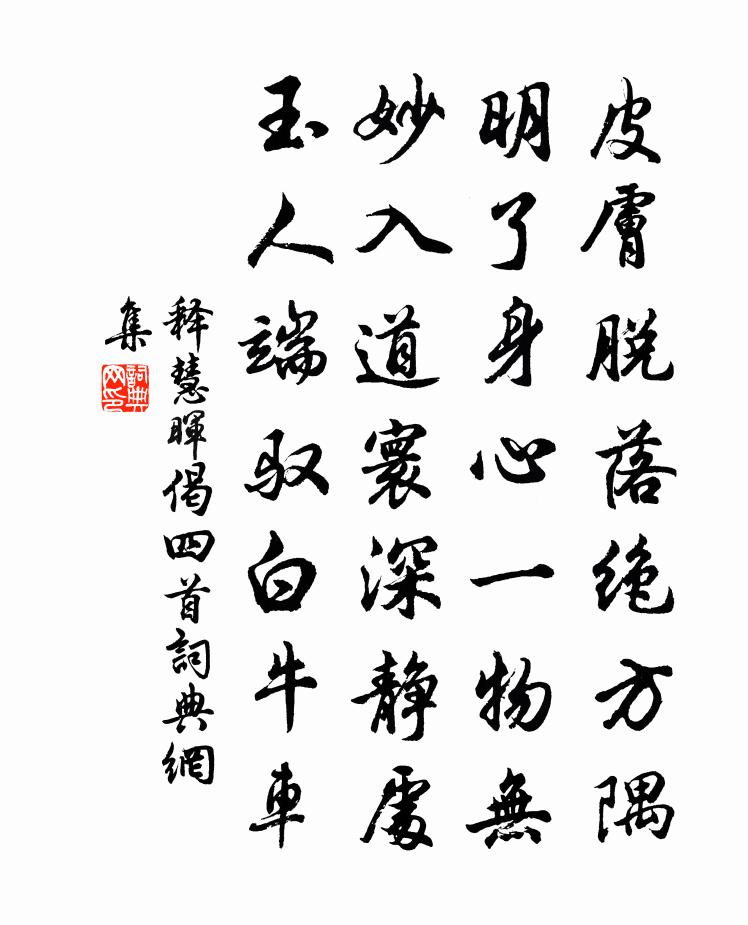 皮膚脫落絶方隅
明了身心一物無
妙入道寰深静處
玉人端馭白牛車
释慧暉偈四首詞典網
集
詞典网印